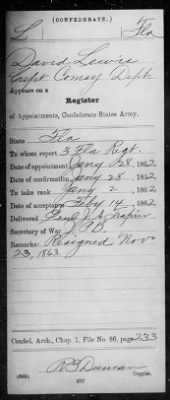 (CONFEDERATE.)
L Fla
David Lewis
Capt Comsy Dept.
Appears on a
Register
of Appointments, Confederate States Army.
State Fla
To whom report 3 Fla Regt.
Date of appointment Jany 28, 1862
Date of confirmation Jany 28, 1862
To take rank Jany 2, 1862
Date of acceptance Feby 14, 1862
Delivered Genl J. H. Trapier
Secretary of War J. P. B.
Remarks: Resigned Nov
23, 1863.
Confed. Arch., Chap. 1, File No. 86, page 233
Duncan
Copyist.